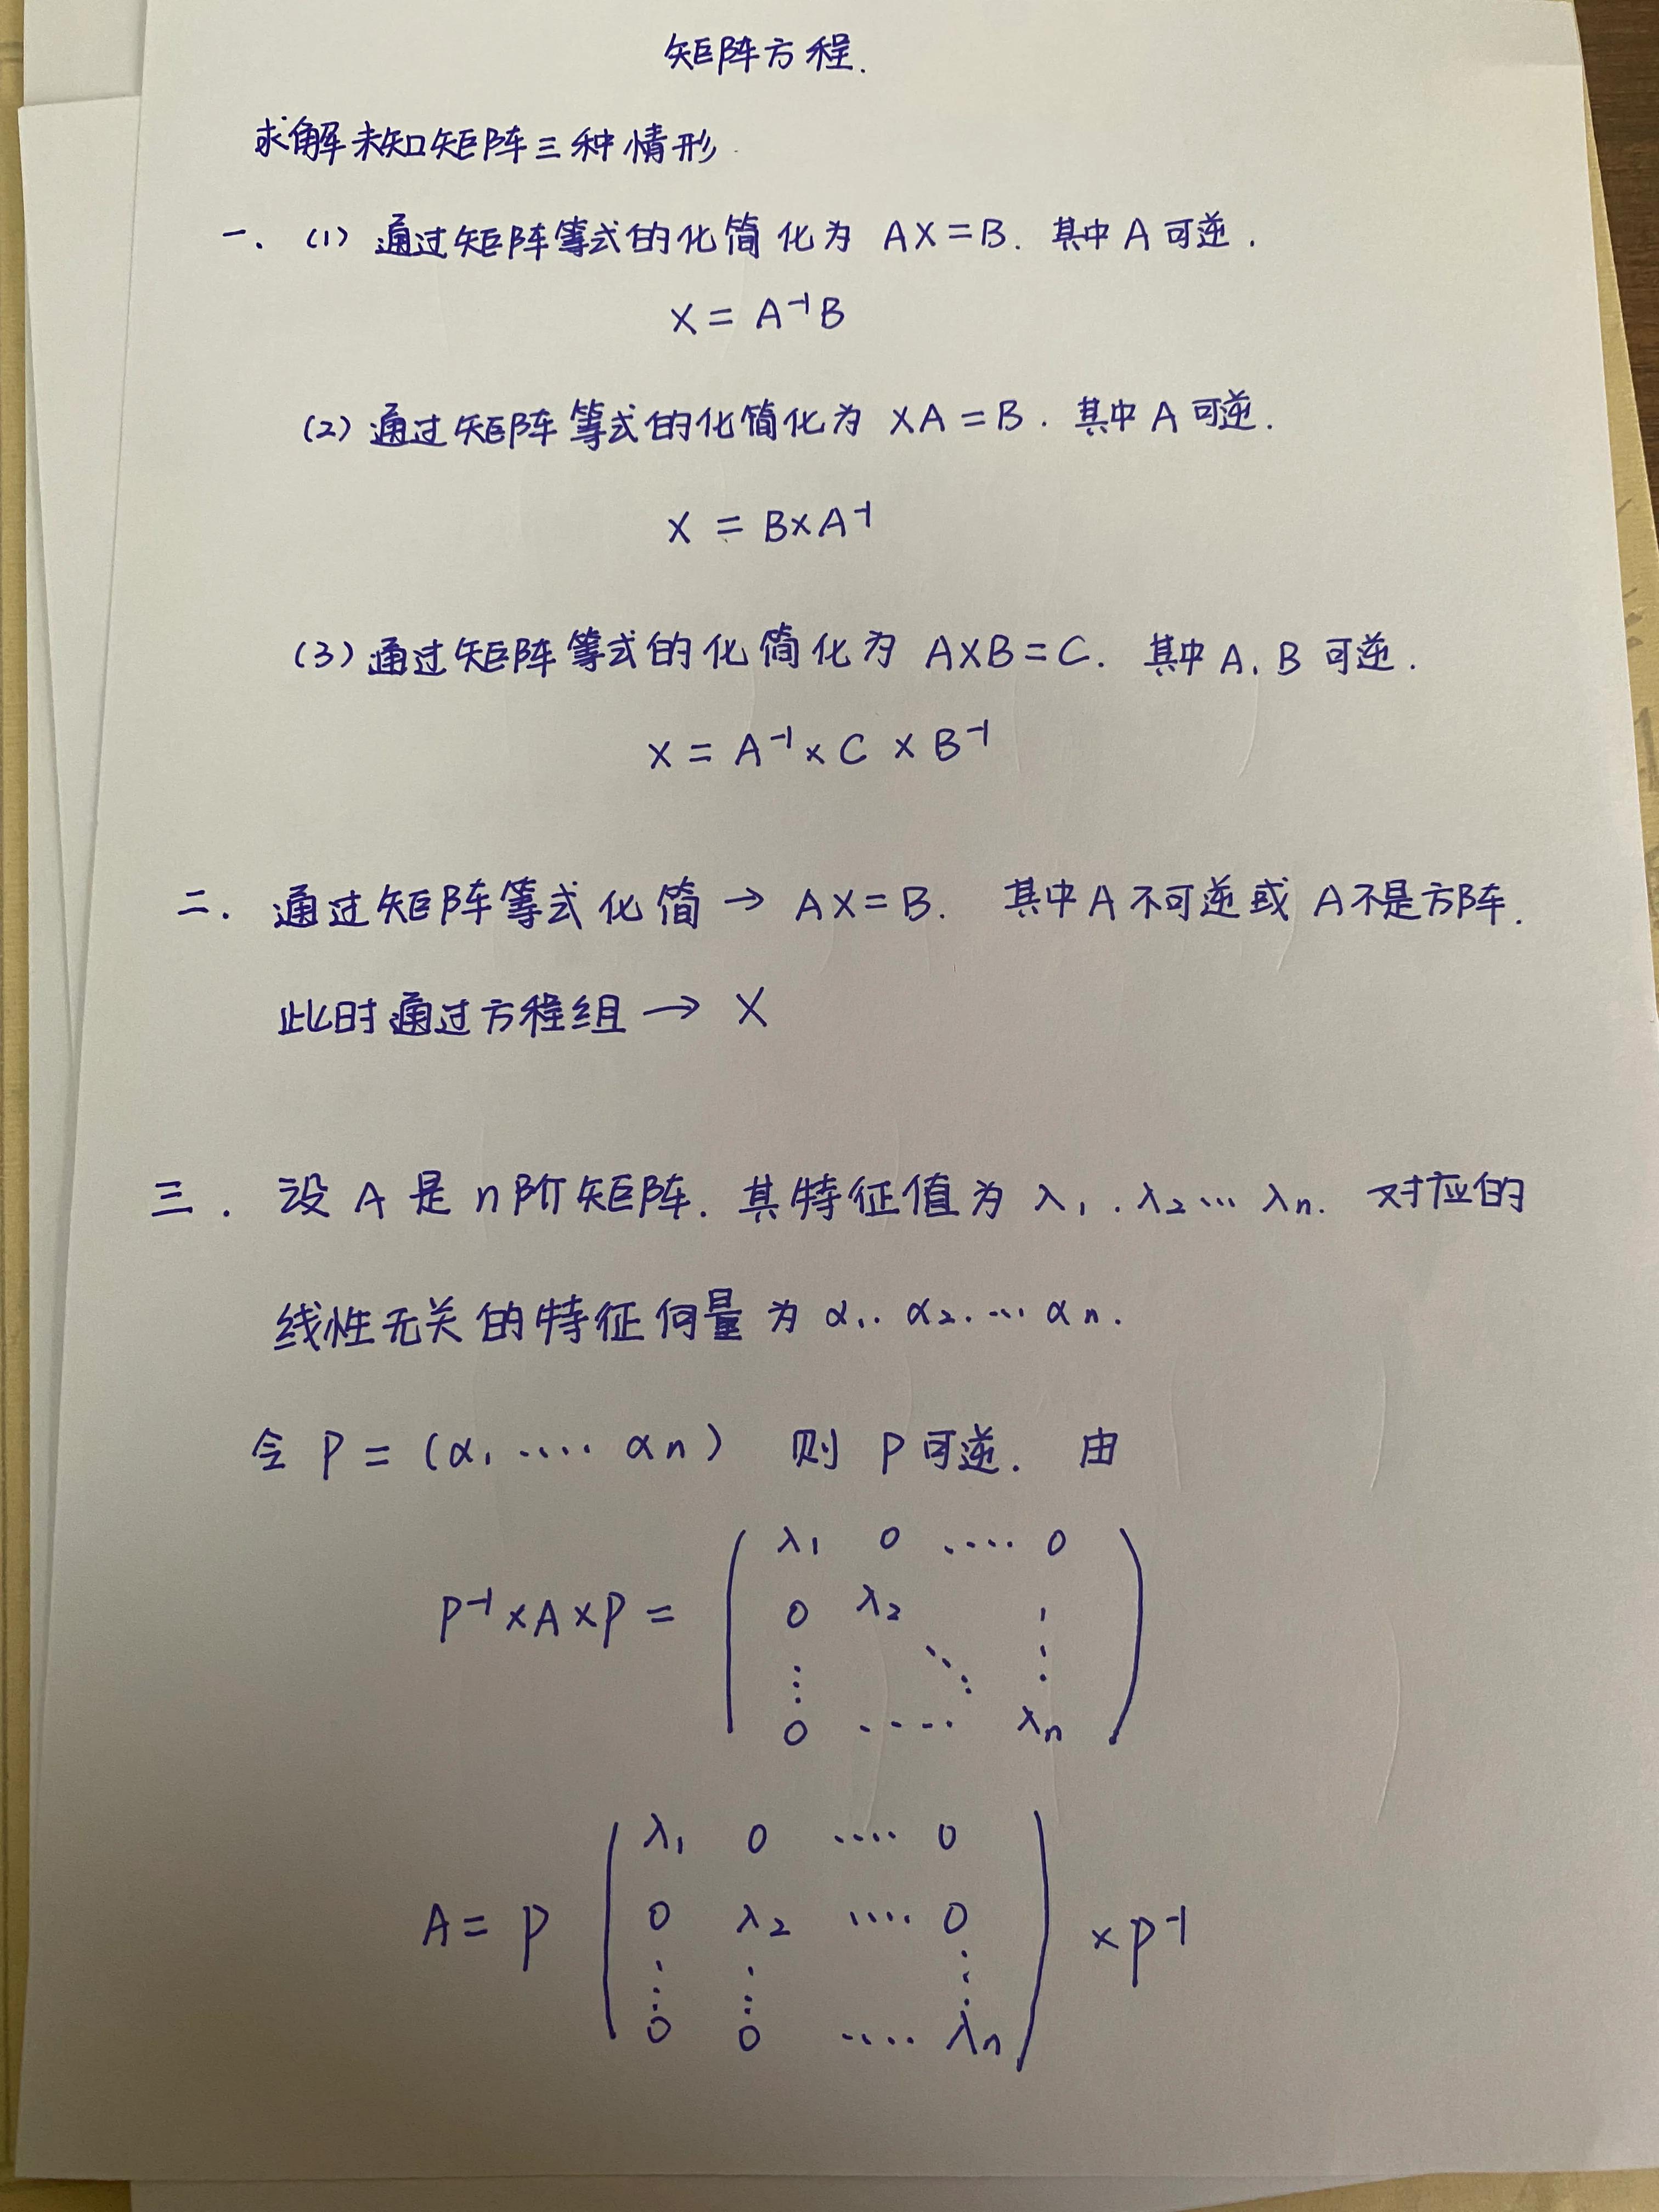 矩阵方程.
求解未知矩阵三种情形.
一、(1) 通过矩阵等式的化简化为 AX=B. 其中A可逆.
X = A⁻¹B
(2) 通过矩阵等式的化简化为 XA=B. 其中A可逆.
X = B×A⁻¹
(3) 通过矩阵等式的化简化为 AXB=C. 其中A、B可逆.
X = A⁻¹×C×B⁻¹
二. 通过矩阵等式化简→AX=B. 其中A不可逆或A不是方阵.
此时通过方程组→X
三. 设A是n阶矩阵. 其特征值为λ₁.λ₂…λn. 对应的
线性无关的特征向量为α₁.α₂.…αn.
令P=(α₁….αn) 则P可逆. 由
λ₁ 0 …. 0
P⁻¹×A×P = 0 λ₂ ⋮
⋮ ⋱ ⋮
0 …. λn
λ₁ 0 …. 0
A = P 0 λ₂ …. 0 ×P⁻¹
⋮ ⋮ ⋮
0 0 …. λn